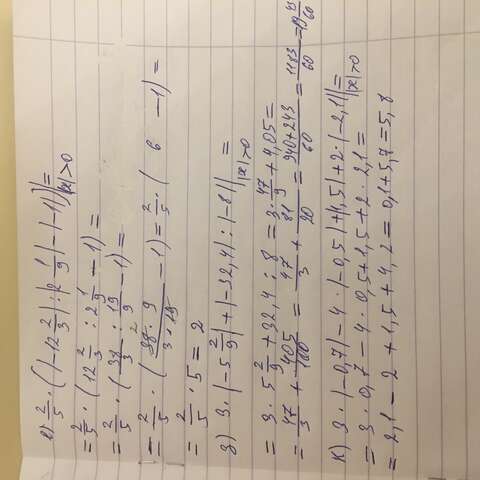 е) 2/5 · (|-12 2/3| : |2 1/9| - |-1|) |= |x|>0
= 2/5 · (12 2/3 : 2 1/9 - 1) =
= 2/5 · (38/3 : 19/9 - 1) =
= 2/5 · (38 · 9 / 3 · 19 - 1) = 2/5 · ( 6 - 1) =
= 2/5 · 5 = 2
з) 3 · |-5 2/9| + |-32,4| : |-8| |= |x|>0
= 3 · 5 2/9 + 32,4 : 8 = 3 · 47/9 + 4,05 =
= 47/3 + 405/100 = 47/3 + 81/20 = 940+243/60 = 1183/60 = 19 43/60
к) 3 · |-0,7| - 4 · |-0,5| + |1,5| + 2 · |-2,1| |= |x|>0
= 3 · 0,7 - 4 · 0,5 + 1,5 + 2 · 2,1 =
= 2,1 - 2 + 1,5 + 4,2 = 0,1 + 5,7 = 5,8